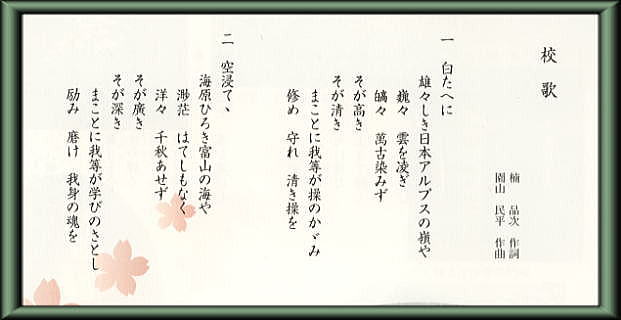 校歌
楠 品次 作詞
園山 民平 作曲
一 白たへに
雄々しき日本アルプスの嶺や
巍々 雲を凌ぎ
皜々 萬古染みず
そが高き
そが清き
まことに我等が操のかゞみ
修め 守れ 清き操を
二 空浸て、
海原ひろき富山の海や
渺茫 はてしもなく
洋々 千秋あせず
そが廣き
そが深き
まことに我等が学びのさとし
励み 磨け 我身の魂を